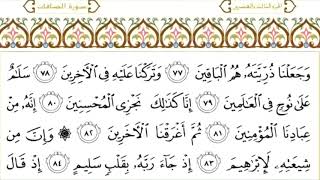 الجزء الثالث والعشرين
سورة الصافات
وَجَعَلْنَا ذُرِّيَّتَهُۥ هُمُ ٱلْبَاقِينَ ٧٧ وَتَرَكْنَا عَلَيْهِ فِى ٱلْءَاخِرِينَ ٧٨ سَلَٰمٌ
عَلَىٰ نُوحٍ فِى ٱلْعَٰلَمِينَ ٧٩ إِنَّا كَذَٰلِكَ نَجْزِى ٱلْمُحْسِنِينَ ٨٠ إِنَّهُۥ مِنْ
عِبَادِنَا ٱلْمُؤْمِنِينَ ٨١ ثُمَّ أَغْرَقْنَا ٱلْءَاخَرِينَ ٨٢ ۞ وَإِنَّ مِن
شِيعَتِهِۦ لَإِبْرَٰهِيمَ ٨٣ إِذْ جَآءَ رَبَّهُۥ بِقَلْبٍ سَلِيمٍ ٨٤ إِذْ قَالَ